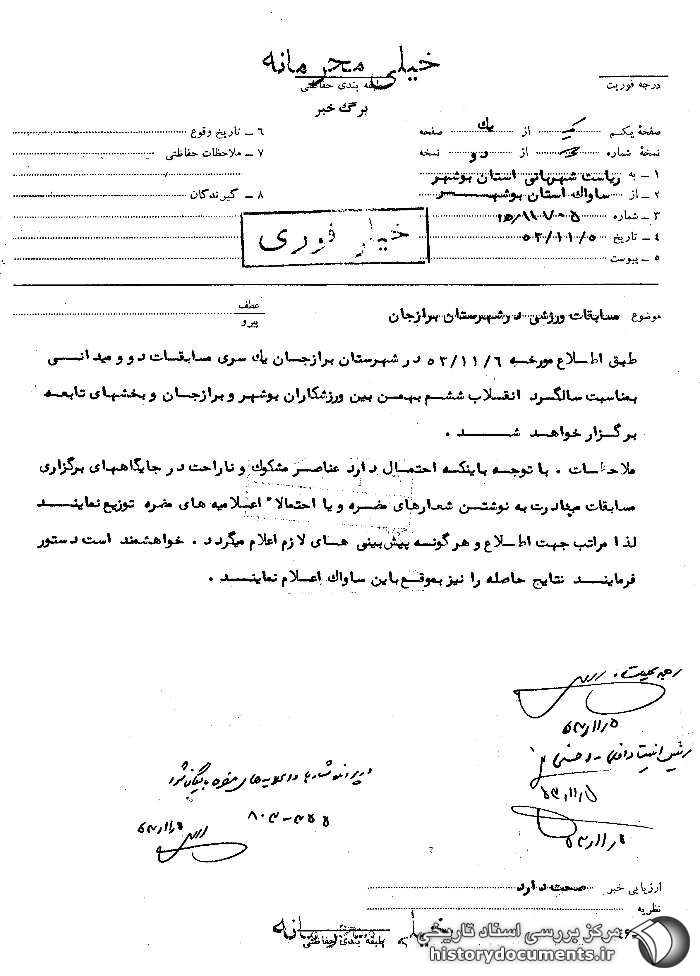 خیلی محرمانه
طبقه بندی حفاظتی
درجه فوریت
برگ خبر
صفحهٔ یکم یک از یک صفحه
نسخهٔ شماره از دو نسخه
۱ ـ به ریاست شهربانی استان بوشهر
۲ ـ از ساواک استان بوشهر
۳ ـ شماره
۴ ـ تاریخ ۵۳/۱۱/۵
۵ ـ پیوست
۶ ـ تاریخ وقوع
۷ ـ ملاحظات حفاظتی
۸ ـ گیرندگان
خیلی فوری
موضوع مسابقات ورزشی در شهرستان برازجان
عطف
پیرو
طبق اطلاع مورخه ۵۳/۱۱/۶ در شهرستان برازجان یک سری مسابقات دو و میدانی
بمناسبت سالگرد انقلاب ششم بهمن بین ورزشکاران بوشهر و برازجان و بخشهای تابعه
برگزار خواهد شد .
ملاحظات . با توجه باینکه احتمال دارد عناصر مشکوک و ناراحت در جایگاههای برگزاری
مسابقات مبادرت به نوشتن شعارهای مضره و یا احتمالا" اعلامیه های مضره توزیع نمایند
لذا مراتب جهت اطلاع و هرگونه پیش بینی های لازم اعلام میگردد . خواهشمند است دستور
فرمایند نتایج حاصله را نیز بموقع باین ساواک اعلام نمایند .
۵۳/۱۱/۵
ارزیابی خبر صحت دارد
نظریه
خیلی محرمانه
طبقه بندی حفاظتی
مرکز بررسی اسناد تاریخی
historydocuments.ir